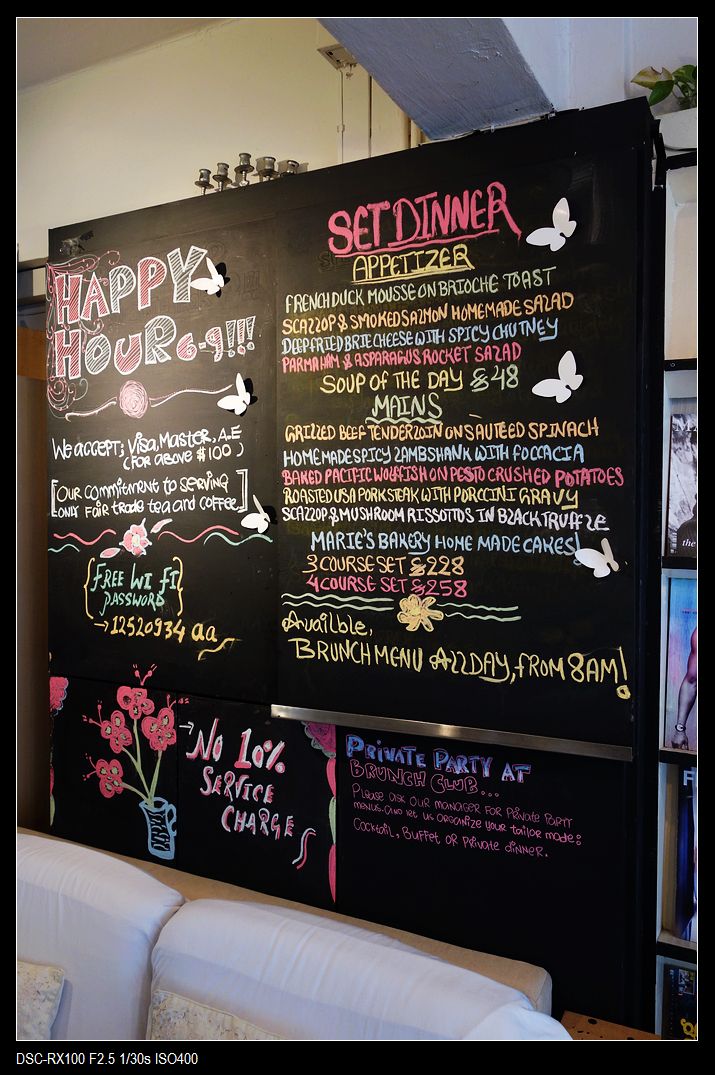 HAPPY
HOUR 6-9!!!
We accept; Visa, Master, A.E
(For above $100)
[Our commitment to serving
only fair trade tea and coffee]
{Free Wi Fi
Password}
→12520934 aa
→No 10%
Service
Charge
SET DINNER
APPETIZER
FRENCH DUCK MOUSSE ON BRIOCHE TOAST
SCALLOP & SMOKED SALMON HOMEMADE SALAD
DEEPFRIED BRIE CHEESE WITH SPICY CHUTNEY
PARMA HAM & ASPARAGUS ROCKET SALAD
SOUP OF THE DAY $48
MAINS
GRILLED BEEF TENDERLOIN ON SAUTEED SPINACH
HOMEMADE SPICY LAMBSHANK WITH FOCCACIA
BAKED PACIFIC WOLFISH ON PESTO CRUSHED POTATOES
ROASTED USA PORK STEAK WITH PORCCINI GRAVY
SCALLOP & MUSHROOM RISSOTTOS IN BLACK TRUFFLE
MARIE'S BAKERY HOME MADE CAKES!
3 COURSE SET $228
4 COURSE SET $258
Availble,
BRUNCH MENU ALL DAY, FROM 8AM!
PRIVATE PARTY AT
BRUNCH CLUB...
Please ask our manager for private party
menus. and let us organize your tailor made:
Cocktail, Buffet or Private dinner.
the
DSC-RX100 F2.5 1/30s ISO400